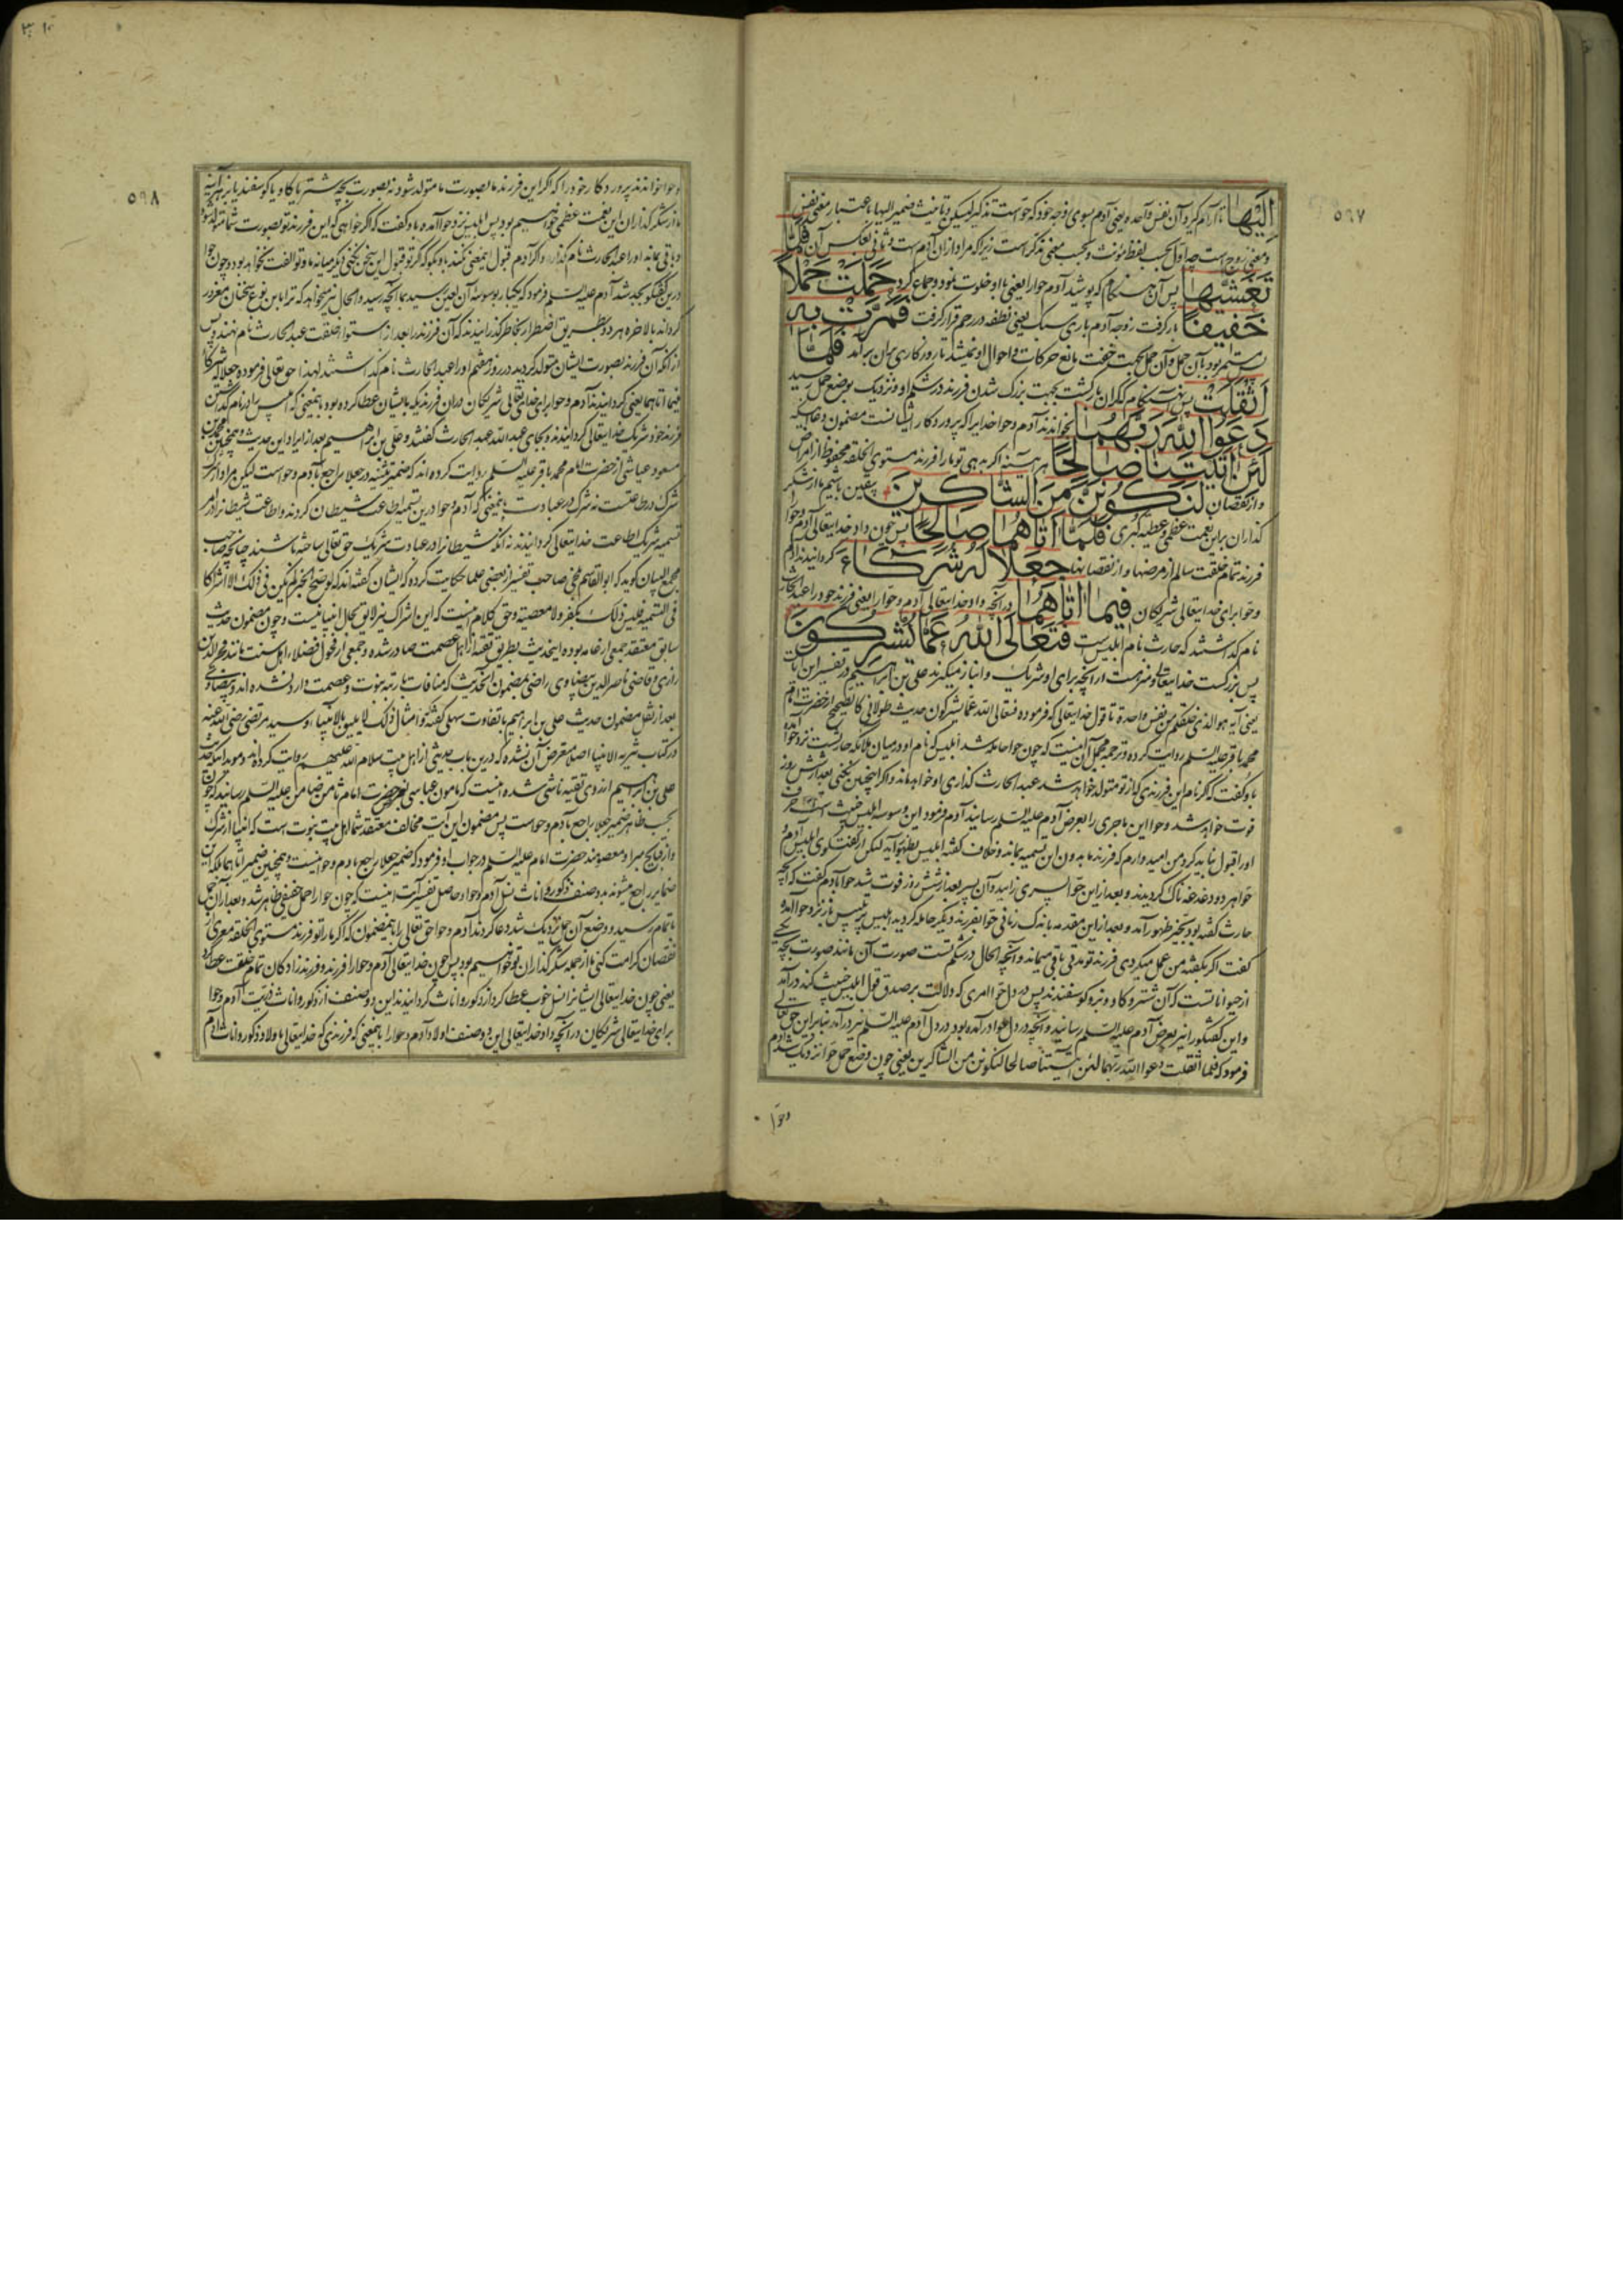 ٥٩٧
اِلَیْهَا تا آرام گیرد آن نفس واحده یعنی آدم بسوی زوجه خود که حوّاست تذکیر لیسکن و تانیث ضمیر الیها باعتبار معنی نفس
و معنی زوج است چه اول بحسب لفظ مونث و بحسب معنی مذکر است زیرا که مراد از ان آدم است و ثانی بعکس آن فَلَمَّا
تَغَشّٰیهَا پس آن هنگام که پوشید آدم حوا را یعنی با او خلوت نمود و جماع کرد حَمَلَتْ حَمْلًا
خَفِیفًا بار گرفت زوجه آدم باری سبک یعنی نطفه در رحم قرار گرفت فَمَرَّتْ بِهِ
پس مستمر بود بآن حمل و آن حمل بجهت خفت مانع حرکات و احوال او نمیشد تا روزکاری بران برآمد فَلَمَّا
اَثْقَلَتْ پس هنگام که گران بار گشت بجهت بزرگ شدن فرزند در شکم او و نزدیک بوضع حمل رسید
دَعَوَا اللّٰهَ رَبَّهُمَا بخواندند آدم و حوا خدایرا که پروردکار ایشانست مضمون دعا اینکه
لَئِنْ اٰتَیْتَنَا صَالِحًا هر آینه اکر بدهی تو ما را فرزند مستوی الخلقه محفوظ از امراض
و از نقصان لَنَكُونَنَّ مِنَ الشَّاكِرِینَ یقین باشیم ما از شکر
گذاران براین نعمت عظمی و عطیه کبری فَلَمَّا اٰتَاهُمَا صَالِحًا پس چون داد خدایتعالی آدم و حوا
فرزند تمام خلقت سالم از مرضها و از نقصانها جَعَلَا لَهُ شُرَكَاءَ گردانیدند آدم
و حوا برای خدایتعالی شریکان فِیمَا اٰتَاهُمَا در آنچه داد خدایتعالی آدم و حوا را یعنی فرزند خود را عبد الحارث
نام گذاشتند که حارث نام ابلیس است فَتَعَالَی اللّٰهُ عَمَّا یُشْرِكُونَ
پس بزرگست خدایتعالی و منزه است از آنچه برای او شریک و انباز میگیرند علی بن ابراهیم در تفسیر این آیات
یعنی آیه هو الذی خلقکم من نفس واحدة تا قول خدایتعالی که فرموده فتعالی الله عمّا یشرکون حدیث طولانی کالصحیح از حضرت امام
محمد باقر علیه السلم روایت کرده و ترجمه مجمل آن اینست که چون حوا حامله شد ابلیس که نام او در میان ملائکه حارثست نزد حوا آمده
باو گفت که اگر نام این فرزندی که از تو متولد خواهد شد عبد الحارث گذاری او خواهد ماند و اگر اینچنین نکنی بعد از شش روز
فوت خواهد شد و حوا این ماجری را بعرض آدم علیه السلم رسانید آدم فرمود این وسوسه ابلیس خبیث است حرف
او را قبول نباید کرد و من امیدوارم که فرزند ما بدون این تسمیه بماند و خلاف گفته ابلیس بظهور آید لیکن از گفت و گوی ابلیس آدم و
حوا هر دو دغدغه ناک گردیدند و بعد از این حوا پسری زایید و آن پسر بعد از شش روز فوت شد حوا بآدم گفت که آنچه
حارث گفته بود بحیز ظهور آمد و بعد از این مقدمه باندک زمانی حوا بفرزند دیگر حامله گردید ابلیس پر تلبیس باز نزد حوا آمده
گفت اگر بگفته من عمل میکردی فرزند تو مدتی باقی میماند و آنچه الحال در شکم تست صورت آن مانند صورت بچه یکی
از حیواناتست که آن شتر و گاو و بز و گوسفندند پس در دل حوا امری که دلالت بر صدق قول ابلیس خبیث کند درآمد
و این گفتگو را نیز بعرض آدم علیه السلم رسانید و آنچه در دل حوا درآمده بود در دل آدم علیه السلم نیز درآمد بنابراین حق تعالی
فرمود که فلما اثقلت دعوا الله ربهما لئن آتیتنا صالحا لنکونن من الشاکرین یعنی چون وضع حمل حوا نزدیک شد آدم
وحوّا
٥٩٨
و حوا خواندند پروردکار خود را که اگر این فرزند ما بصورت ما متولد شود نه بصورت بچه شتر یا گاو یا گوسفند یا بز هر آینه
ما از شکر گذاران این نعمت عظمی خواهیم بود پس ابلیس نزد حوا آمده باو گفت که اگر خواهی که این فرزند تو بصورت شما متولد شود
و باقی بماند او را عبد الحارث نام گذار و اگر آدم قبول اینمعنی نکند باو بگو که اگر تو قبول این سخن نکنی دیگر میانه ما و تو الفت نخواهد بود و چون حوا
درین گفتگو بجد شد آدم علیه السلم فرمود که یکبار بوسوسه آن لعین رسید بما آنچه رسید و الحال نیز میخواهد که ترا باین نوع سخنان مغرور
گرداند بالاخره هر دو بطریق اضطرار بخاطر گذرانیدند که آن فرزند را بعد از استوا خلقت عبد الحارث نام نهند و پس
از آنکه آن فرزند بصورت ایشان متولد گردید در روز هفتم او را عبد الحارث نام گذاشتند لهذا حق تعالی فرموده جعلا له شرکا
فیما آتاهما یعنی گردانیدند آدم و حوا برای خدایتعالی شریکان دران فرزندیکه بایشان عطا کرده بود باینمعنی که ابلیس را در نام گذاشتن
فرزند خود شریک خدایتعالی گردانیدند و بجای عبد الله عبد الحارث گفتند و علی بن ابراهیم بعد از ایراد این حدیث و همچنین محمد بن
مسعود عیاشی از حضرت امام محمد باقر علیه السلم روایت کرده اند که ضمیر تثنیه در جعلا راجع بآدم و حواست لیکن مراد از شرک
شرک در طاعتست نه شرک در عبادت باینمعنی که آدم و حوا درین تسمیه اطاعت شیطان کردند و اطاعت شیطانرا در امر
تسمیه شریک اطاعت خدایتعالی گردانیدند نه آنکه شیطانرا در عبادت شریک حق تعالی ساخته باشند چنانچه صاحب
مجمع البیان گوید که ابو القاسم بلخی صاحب تفسیر از بعضی علما حکایت کرده که ایشان گفته اند که لو صح الخبر لم یکن فی ذلک الا اشراکا
فی التسمیه و لیس ذلک بکفر و لا معصیة و حق کلام اینست که این اشراک نیز لایق بحال انبیا نیست و چون مضمون حدیث
سابق معتقد جمعی از عامه بوده اینحدیث بطریق تقیه از اهل عصمت صادر شده و جمعی از فحول فضلاء اهل سنت مانند فخر الدین
رازی و قاضی ناصر الدین بیضاوی راضی بمضمون اینحدیث که منافات با رتبه نبوت و عصمت دارد نشده اند و بیضاوی
بعد از نقل مضمون حدیث علی بن ابراهیم با تفاوت سهلی گفته و امثال ذلک لا یلیق بالانبیاء و سید مرتضی رضی الله عنه
در کتاب تنزیه الانبیا اصلا متعرض آن نشده که درین باب حدیثی از اهل بیت سلام الله علیهم روایت کرده اند
علی بن ابراهیم از روی تقیه ناشی شده اینست که مامون عباسی بعرض حضرت امام ثامن ضامن علیه السلم رسانید که چون
بحسب ظاهر ضمیر جعلا راجع بآدم و حواست پس مضمون این آیت مخالف معتقد شما اهل بیت نبوت است که انبیا از شرک
و از قبایح مبرا و معصومند حضرت امام علیه السلم در جواب او فرمود که ضمیر جعلا راجع بآدم و حوا نیست و همچنین ضمیر آتاهما بلکه این
ضمایر راجع میشوند بدو صنف ذکور و اناث نسل آدم و حوا و حاصل تفسیر آیت اینست که چون حوا را حمل خفیفی ظاهر شد و بعد از ان حمل
باتمام رسید و وضع آن حمل نزدیک شد دعا کردند آدم و حوا حق تعالی را باینمضمون که اگر ما را تو فرزند مستوی الخلقه معری از
نقصان کرامت کنی ما از جمله شکر گذاران تو خواهیم بود پس چون خدایتعالی آدم و حوا را فرزند و فرزند زادکان تمام خلقت عطا کرد
یعنی چون خدایتعالی ایشانرا نسل خوب عطا کرد از ذکور و اناث گردانیدند این دو صنف از ذکور و اناث ذریت آدم و حوا
برای خدایتعالی شریکان در آنچه داد خدایتعالی این دو صنف اولاد آدم و حوا را باینمعنی که فرزندی که خدایتعالی باولاد ذکور و اناث آدم